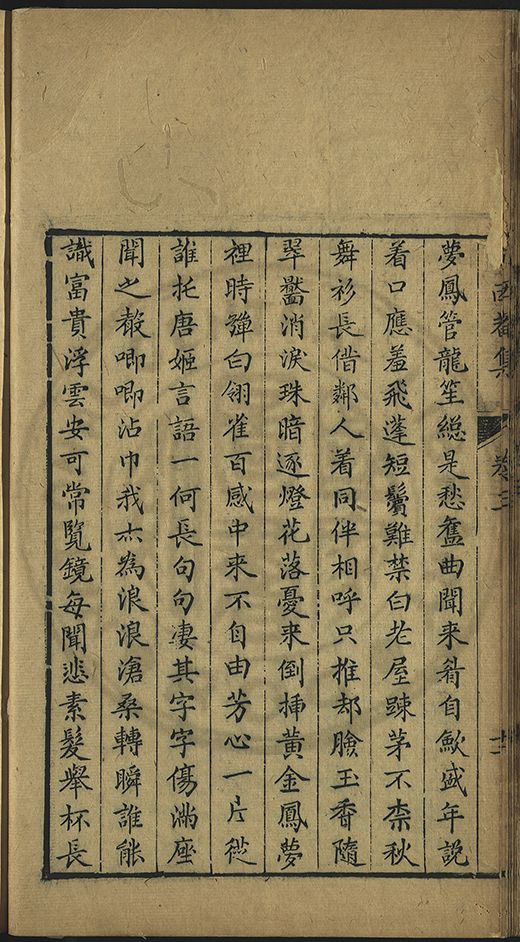 西菴集 卷三
夢鳳管龍笙緫是愁舊曲聞来眉自歛盛年説
着口應羞飛蓬短鬢難禁白老屋踈茅不柰秋
舞衫長借鄰人着同伴相呼只推却臉玉香隨
翠黶消淚珠暗逐燈花落憂来倒揷黃金鳳夢
裡時彈白翎雀百感中来不自由芳心一片從
誰托唐姬言語一何長句句凄其字字傷滿座
聞之聲唧唧沾巾我亦為浪浪滄桑轉瞬誰能
識富貴浮雲安可常覽鏡每聞悲素髮舉杯長